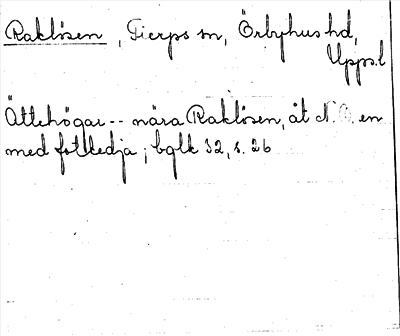 Raklösen, Tierps sn, Örbyhus hd,
Upps.l
Ättehögar -- nära Raklösen, åt N.O. en
med fotkedja; bglk 32, s. 26